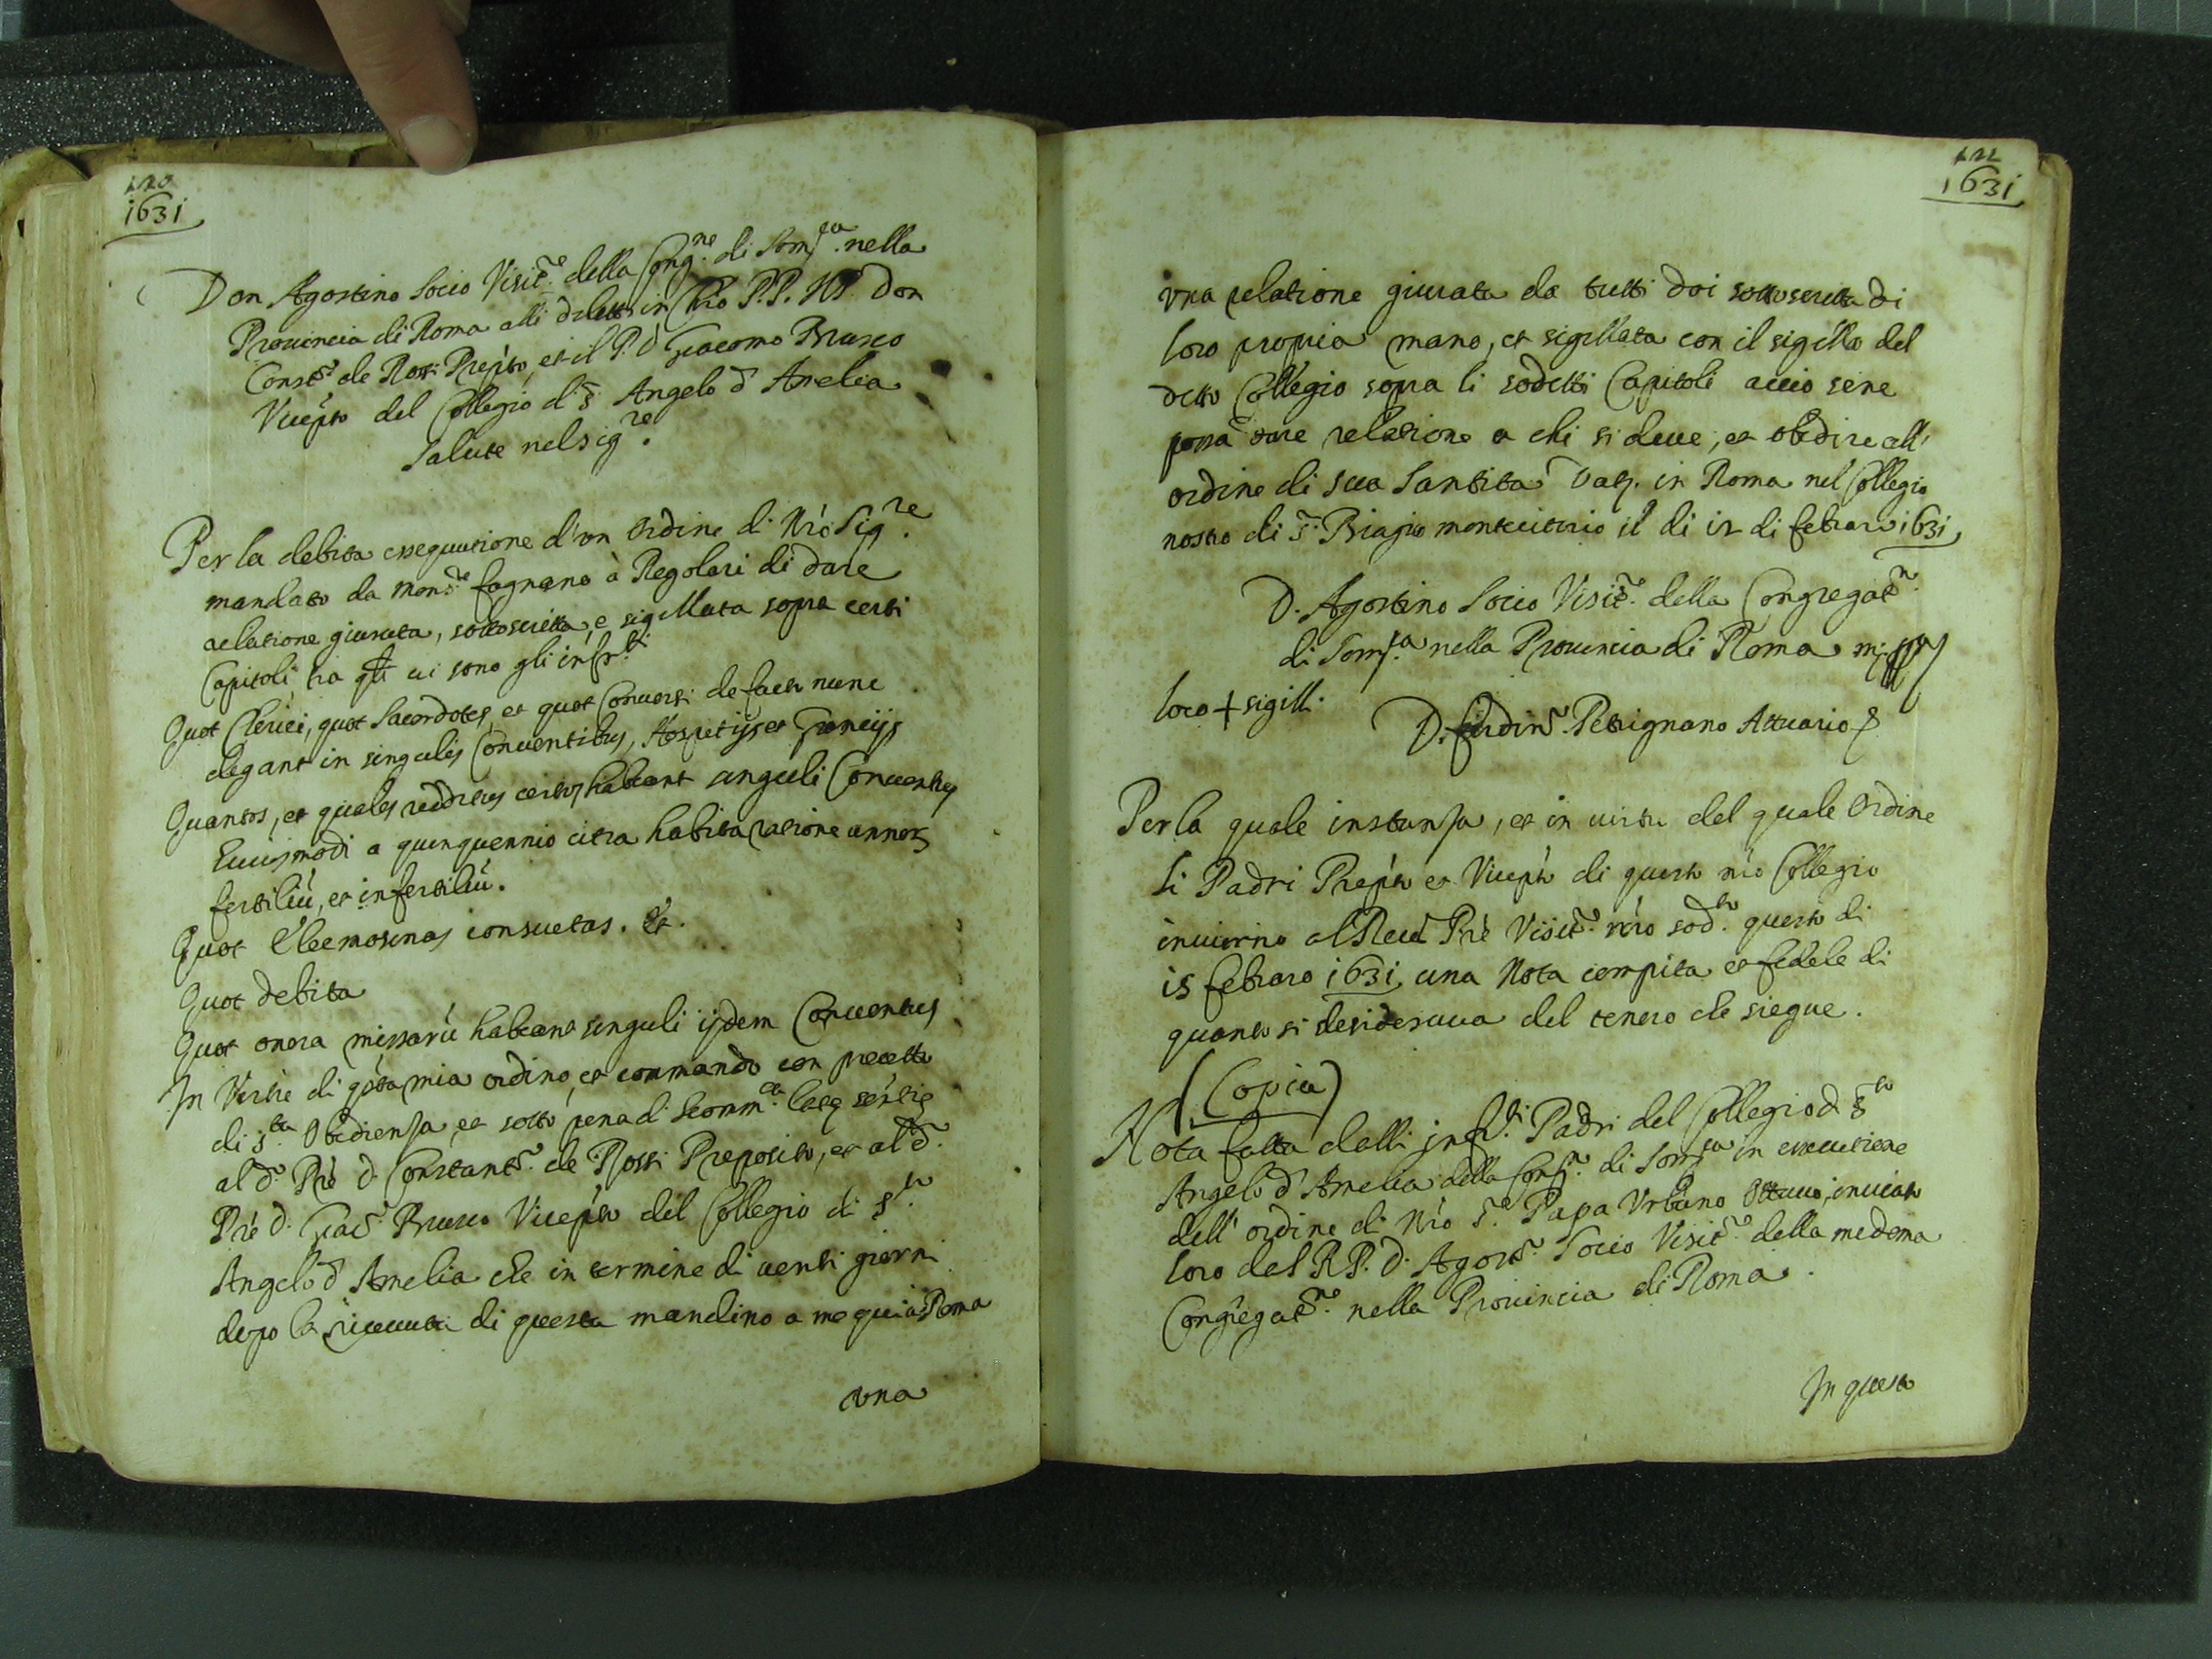 120
1631
Don Agostino Socio Visit.re della Cong.ne di Som.ca nella
Provincia di Roma alli diletti in Chro P.P. NP. Don
Const.o de Rossi Prep.to, et il P. D Giacomo Brusco
Vicep.to del Collegio di S. Angelo d'Amelia
salute nel Sig.re
Per la debita essequutione d'un ordine di Nrō Sig.re
mandato da Mons.re fagnano à Regolari di dare
relatione giurata, sottoscritta, e sigillata sopra certi
Capitoli tra qli vi sono gli infr.ti
Quot Clerici, quot Sacerdotes, et quot Conversi de facto nunc
degant in singulis Conventibus, Hospitijs et Grancijs
Quantos, et quales redditus certos habeant singuli Conventus
Huiusmodi a quinquennio citra habita ratione annor.
fertiliū, et infertiliū.
Quot Eleemosinas consuetas. &.
Quot debita
Quot onera missarū habeant singuli ijsdem Conventus
In Virtù di q.sta mia ordino, et commando con precetto
di s.ta Obedienza, et sotto pena di Scomm.ca
al d.o Prē D. Constant.o de Rossi Preposito, et al d.o
Prē D. Giac.o Brusco Vicep.to del Collegio di S.to
Angelo d'Amelia che in termine di venti giorni
dopo la ricevuta di questa mandino a me qui à Roma
una
122
1631
una relatione giurata da tutti doi sottoscritta di
loro propria mano, et sigillata con il sigillo del
detto Collegio sopra li sodetti Capitoli acciò se ne
possa dare relatione a chi si deve, et obedire all'
ordine di sua Santità Dat. in Roma nel Collegio
nostro di S. Biagio montecitorio il di 12 di febraro 1631
D. Agostino Socio Visit.re della Congregat.ne
di Som.ca nella Provincia di Roma mp
loco + sigilli.
D. ferdin.o Petrignano Attuario
Per la quale instanza, et in virtu del quale Ordine
li Padri Prep.to et Vicep.to di questo nrō Collegio
inviorno al Revd Prē Visit.re nrō sod.to questo di
15 febraro 1631 una Nota compita et fedele di
quanto si desiderava del tenero che siegue.
(Copia)
Nota fatta dalli infr.ti Padri del Collegio di S.to
Angelo d'Amelia della Cong.ne di Som.ca in essecutione
dell' ordine di Nrō S.re Papa Urbano Ottavo, inviato
loro dal R P. D. Agost.o Socio Visit.re della medema
Congregat.ne nella Provincia di Roma.
In questo